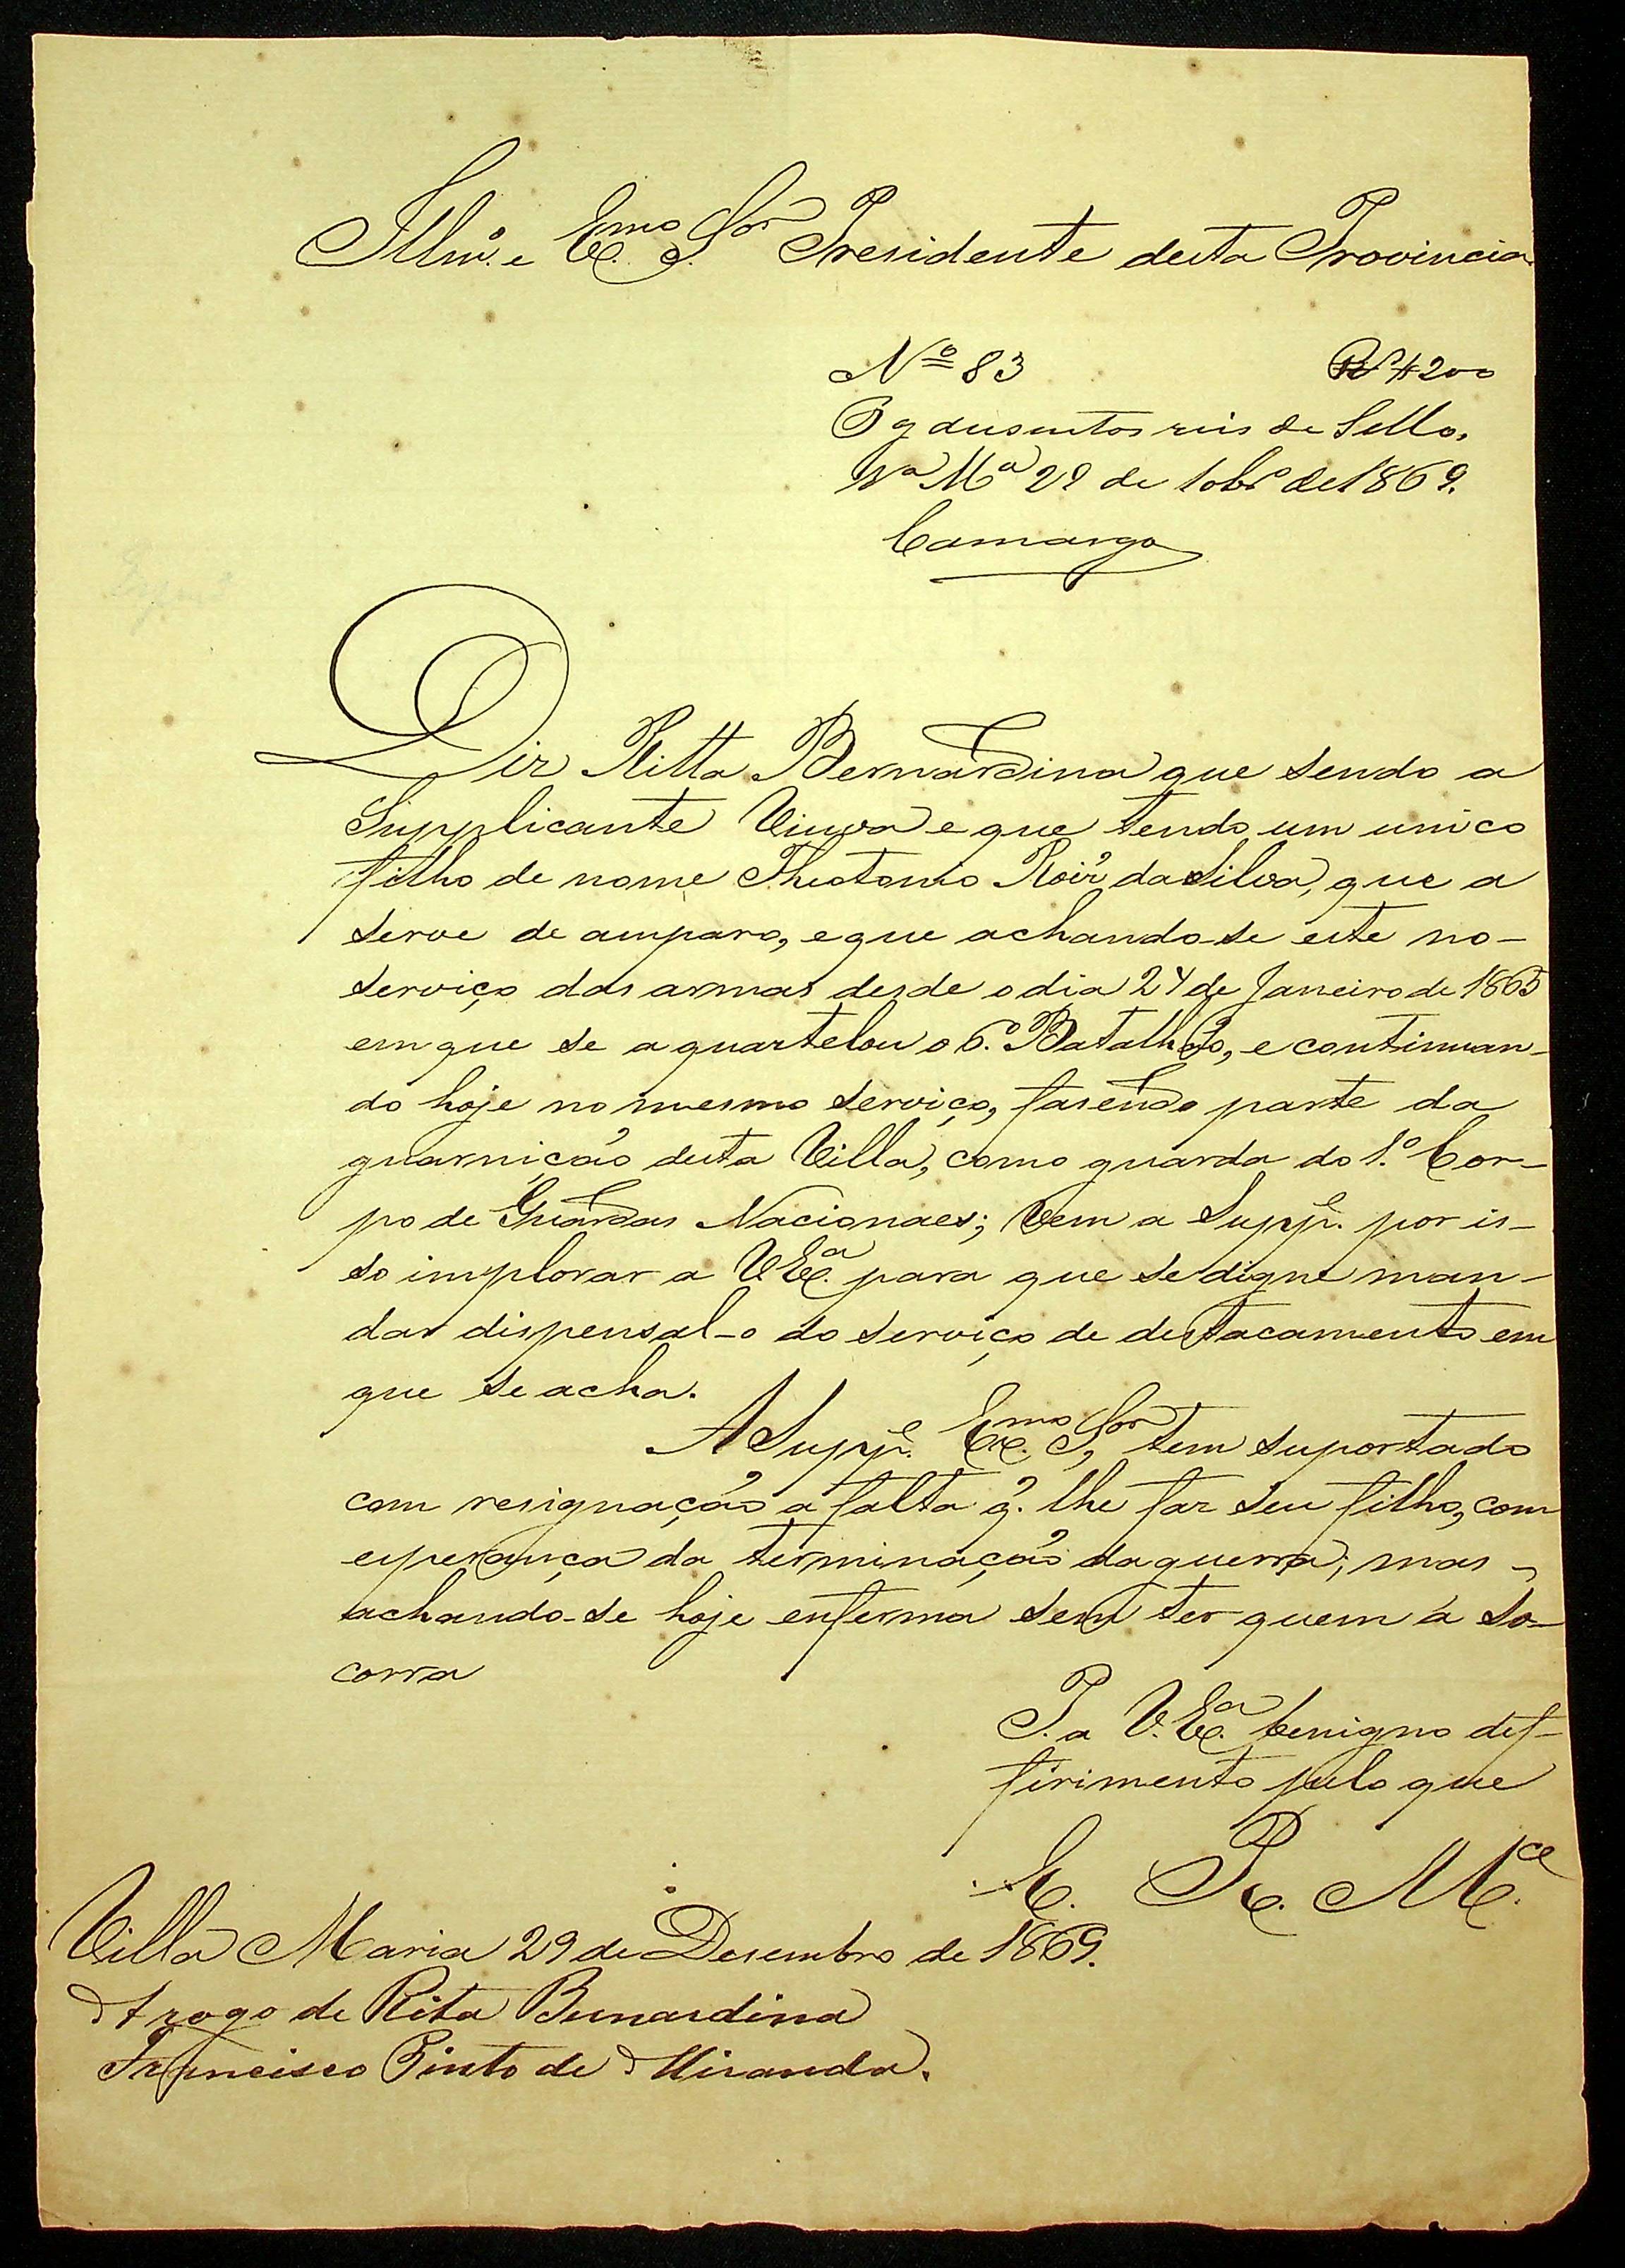 Illmº. e Exmo. Sor. Presidente desta Provincia.
Nº 83 Rs $200
Pg dusentos reis de Sello.
Vª Mª 29 de 10brº de 1869.
Camargo
Diz Ritta Bernardina que sendo a
Supplicante Viuva e que tendo um unico
filho de nome Theotonio Roiz da Silva, que a
serve de amparo, e que achando-se este no-
serviço das armas desde o dia 24 de Janeiro de 1865
em que se aquartelou o 6º. Batalhão, e continuan-
do hoje no mesmo serviço, fasendo parte da
guarnicaõ desta Villa, como guarda do 1º. Cor-
po de Guardas Nacionaes; Vem a Suppe. por is-
so implorar a V Exª. para que se digne man-
dar dispensal-o do serviço de destacamento em
que se acha.
A Suppe. Exmo. Sor, tem suportado
com resignaçaõ a falta q̃. lhe faz seu filho, com
esperança da terminaçaõ da guerra; mas -
achando-se hoje enferma sem ter quem a so-
corra
P. a V. Exª. benigno def-
firimento pelo que
E. R. Mce.
Villa Maria 29 de Desembro de 1869.
A rogo de Rita Bernardina
Francisco Pinto de Miranda.